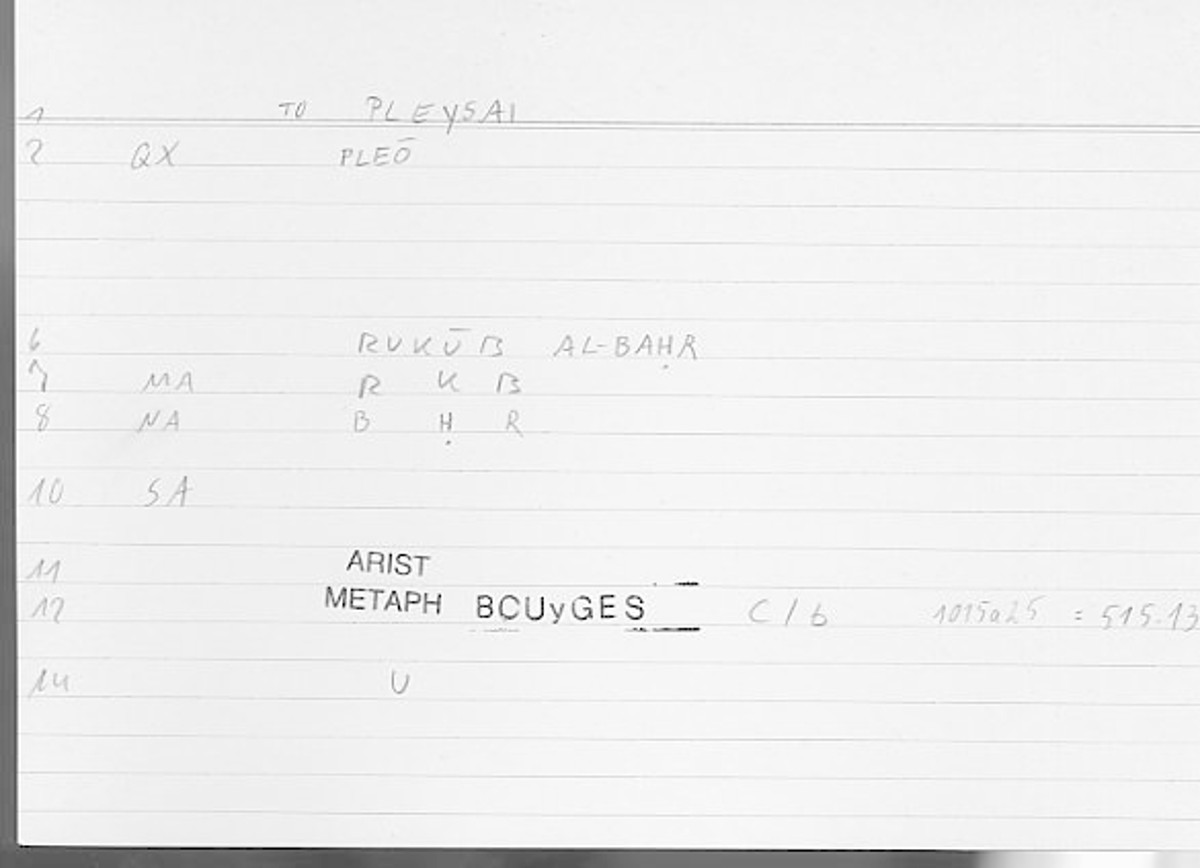 1 TO PLEySAI
2 QX PLEŌ
6 RUKŪB AL-BAḤR
7 MA R K B
8 NA B Ḥ R
10 SA
11 ARIST
12 METAPH BOUyGES C/b 1015a25 = 515.13
14 U